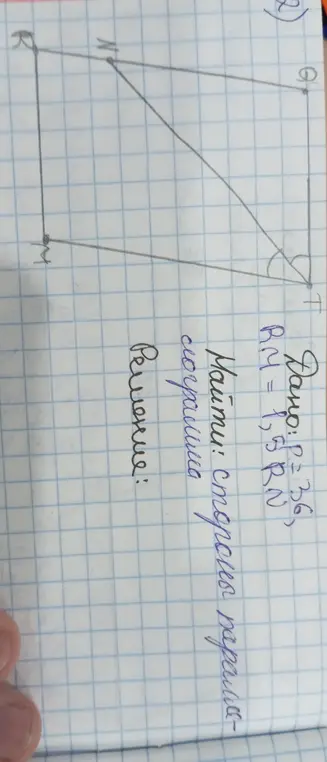 2)
R
N
Q
M
T
Дано: P = 36,
RM = 1,5 RN
Найти: стороны паралле-
лограмма
Решение: